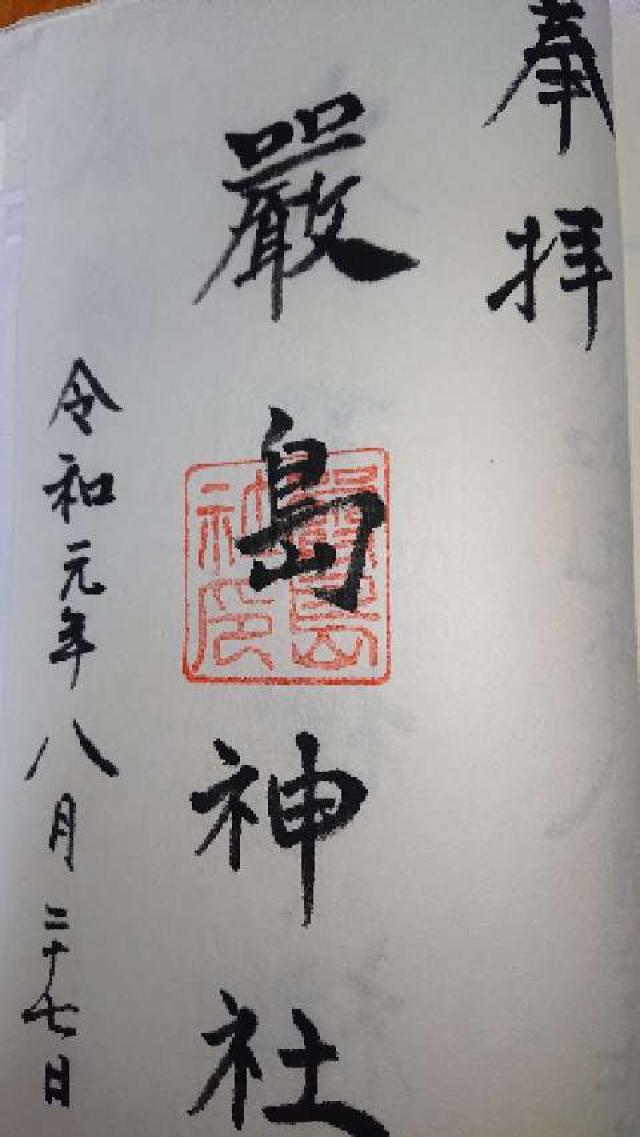 奉拝
嚴島神社
令和元年八月二十七日